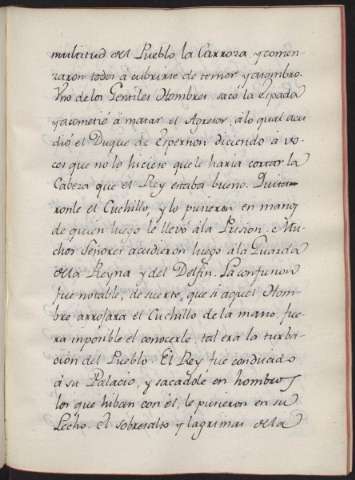 multitud del Pueblo la Carroza y comen
zaron todos à cubrirse de temor y asombro.
Vno de los Gentiles Hombres sacó la espada
y acometió à matar el Agresor, à lo qual acu
dió el Duque de Espernon diciendo à vo
ces que no lo hiciese que le haria cortar la
Cabeza que el Rey estaba bueno. Quita
ronle el Cuchillo, y lo pusieron en manos
de quien luego le llevó à la Prision. Mu
chos Señores acudieron luego à la Guarda
de la Reyna y del Delfin. La confusion
fue notable, de suerte, que si aquel Hom
bre arrojara el Cuchillo de la mano, fue
ra imposible el conocerle, tal era la turba
cion del Pueblo. El Rey fue conducido
à su Palacio, y sacadole en hombros
los que hiban con èl, le pusieron en su
Lecho. el sobresalto y lagrimas de la